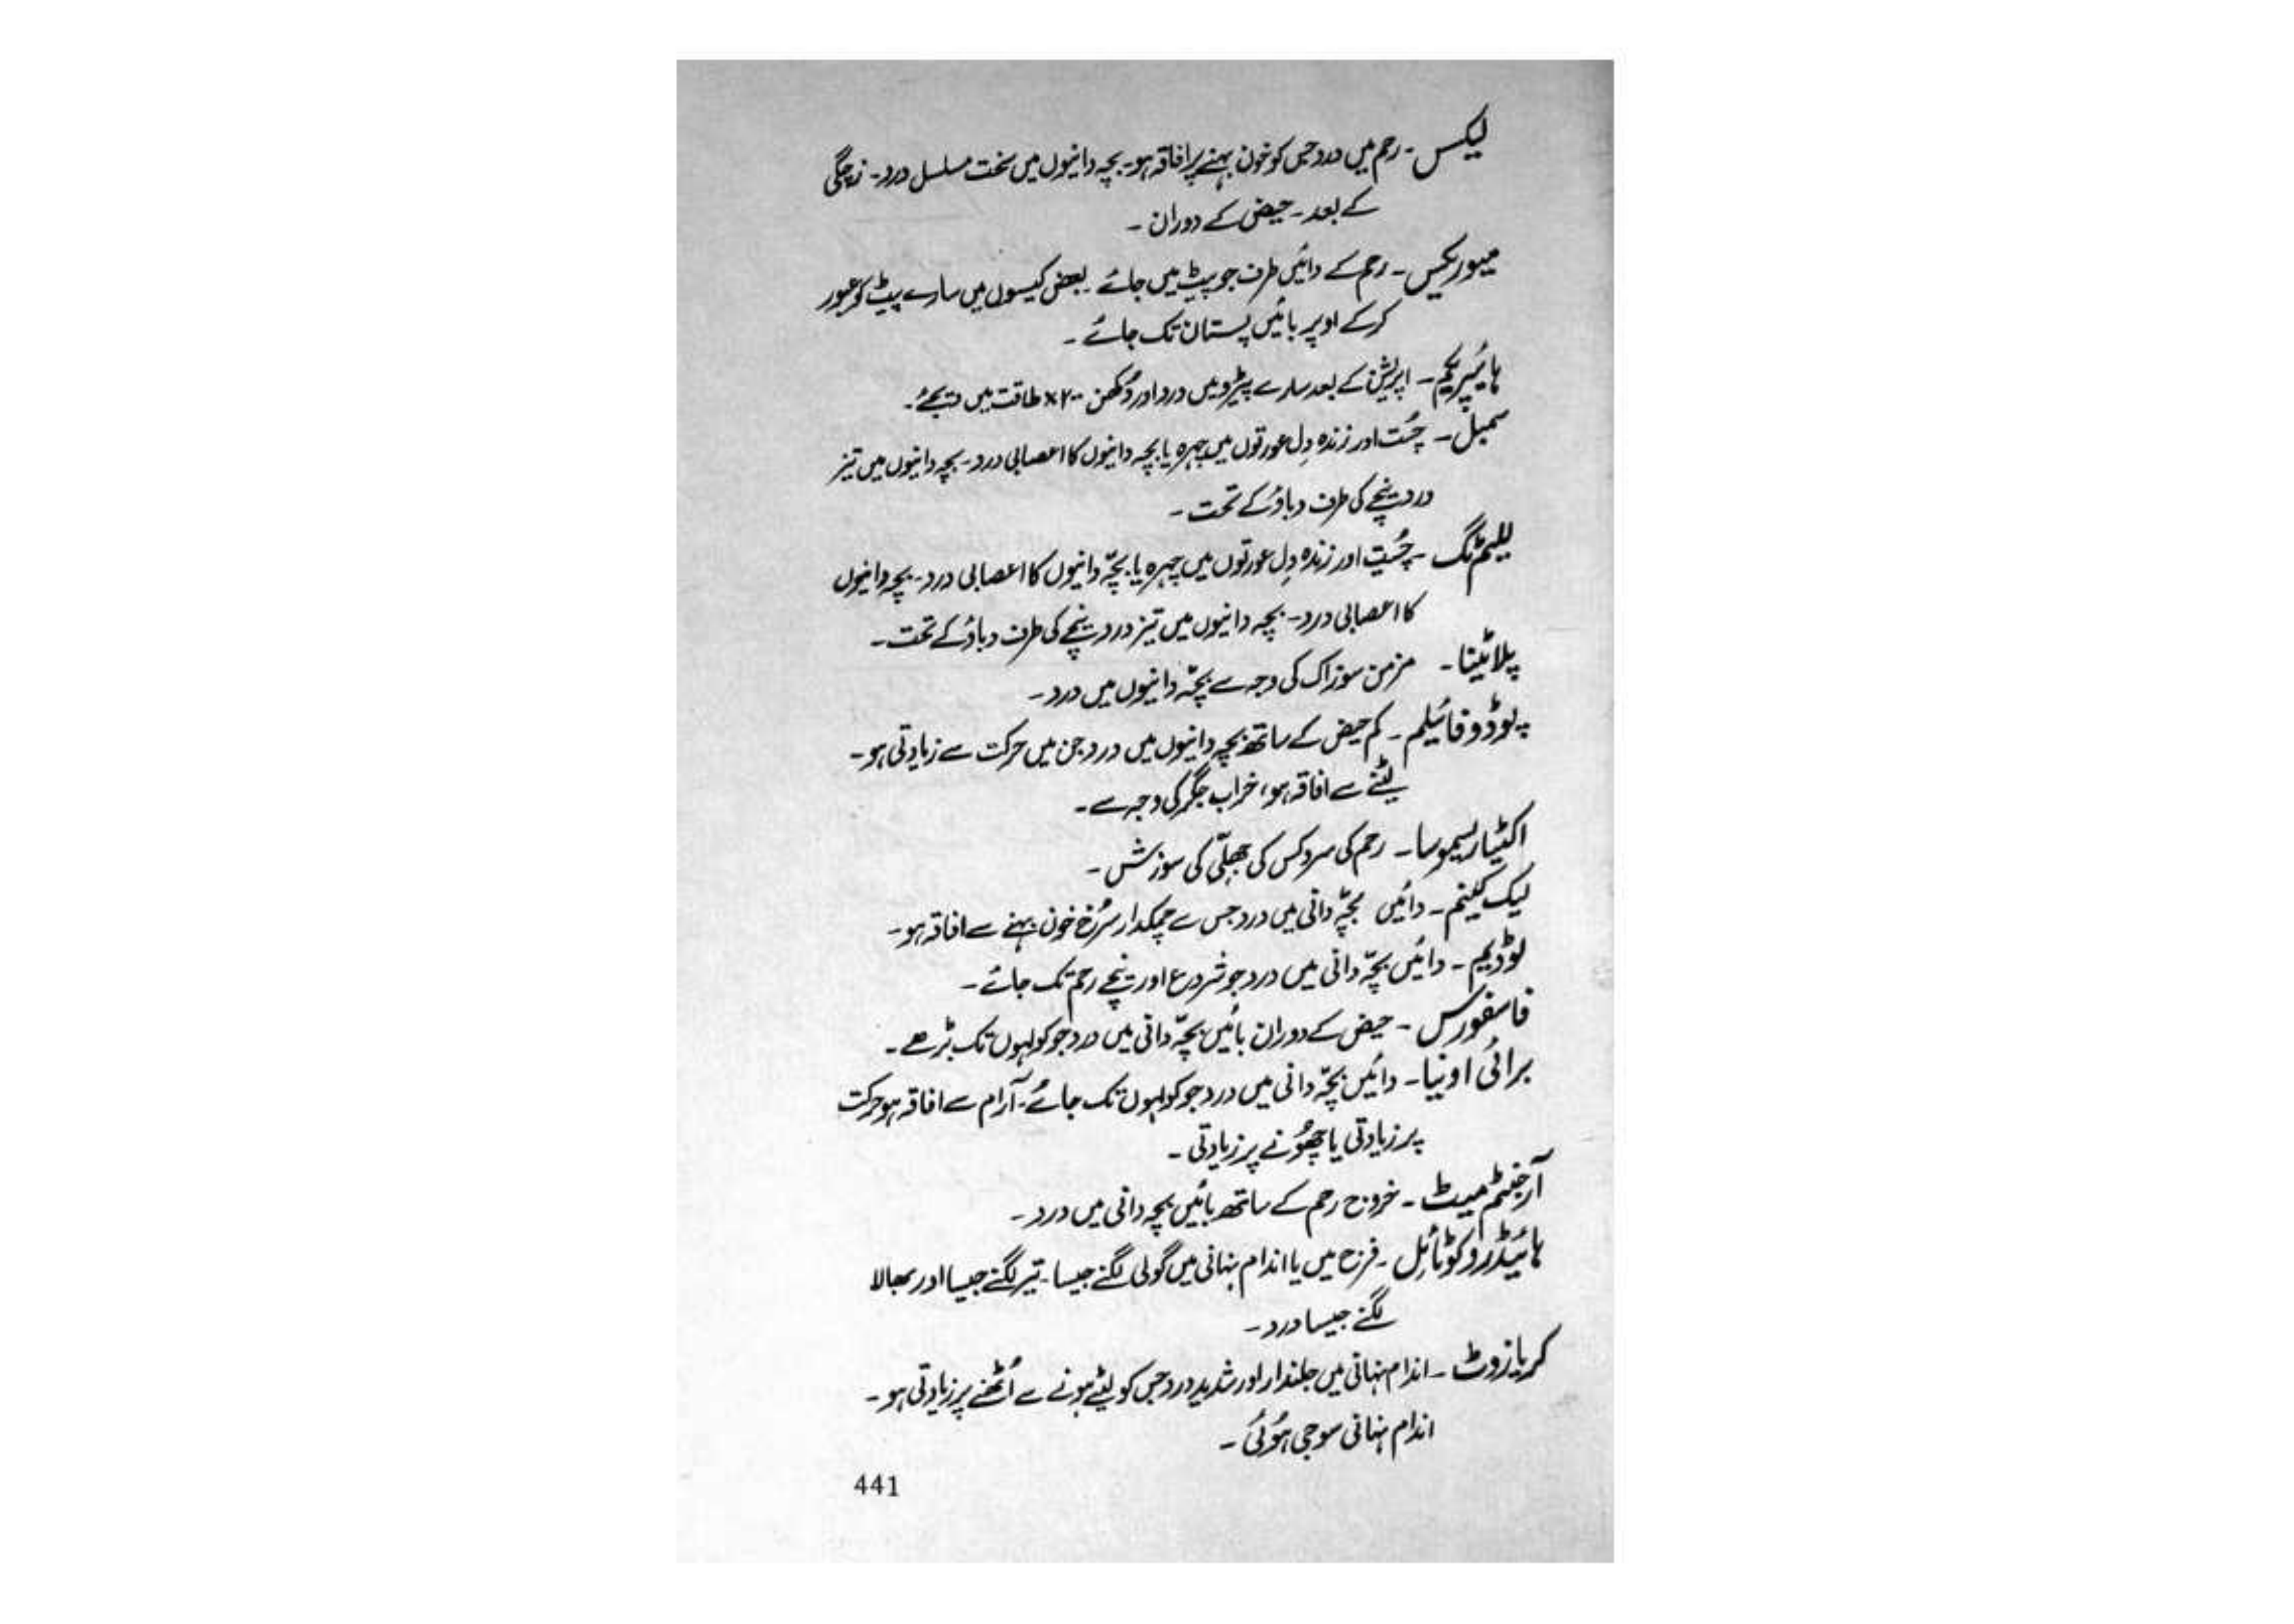 لیکس - رحم میں درد جس کو خون بہنے پر افاقہ ہو۔ بچہ دانیوں میں سخت مسلسل درد۔ زچگی
کے بعد۔ حیض کے دوران۔
میوریکس - رحم کے دائیں طرف جو پیٹ میں جائے۔ بعض کیسوں میں سارے پیٹ کو عبور
کرکے اوپر بائیں پستان تک جائے۔
ہائیپریکم - اپریشن کے بعد سارے پیڑو میں درد اور دُکھن ۲۰۰x طاقت میں دیجئے۔
سمبل - چُست اور زندہ دِل عورتوں میں چہرہ یا بچہ دانیوں کا اعصابی درد۔ بچہ دانیوں میں تیز
درد نیچے کی طرف دباؤ کے تحت۔
للیم ٹگ - چُست اور زندہ دِل عورتوں میں چہرہ یا بچّہ دانیوں کا اعصابی درد۔ بچہ دانیوں
کا اعصابی درد۔ بچہ دانیوں میں تیز درد نیچے کی طرف دباؤ کے تحت۔
پلاٹینا - مزمن سوزاک کی وجہ سے بچّہ دانیوں میں درد۔
پوڈوفائیلم - کم حیض کے ساتھ بچہ دانیوں میں درد جن میں حرکت سے زیادتی ہو۔
لیٹنے سے افاقہ ہو، خراب جگر کی وجہ سے۔
اکٹیا ریسموسا - رحم کی سروکس کی جھلّی کی سوزش۔
لیک کینم - دائیں بچّہ دانی میں درد جس سے چمکدار سُرخ خون بہنے سے افاقہ ہو۔
لوڈیم - دائیں بچّہ دانی میں درد جو شروع اور نیچے رحم تک جائے۔
فاسفورس - حیض کے دوران بائیں بچّہ دانی میں درد جو کولہوں تک بڑھے۔
برائی اونیا - دائیں بچّہ دانی میں درد جو کولہوں تک جائے۔ آرام سے افاقہ ہو حرکت
پر زیادتی یا چھُونے پر زیادتی۔
آرجنٹم میٹ - خروج رحم کے ساتھ بائیں بچہ دانی میں درد۔
ہائیڈروکوٹائل - فرج میں یا اندام نہانی میں گولی لگنے جیسا۔ تیر لگنے جیسا اور بھالا
لگنے جیسا درد۔
کریازوٹ - اندام نہانی میں جلندار اور شدید درد جس کو لیٹے ہونے سے اُٹھنے پر زیادتی ہو۔
اندام نہانی سوجی ہُوئی۔
441